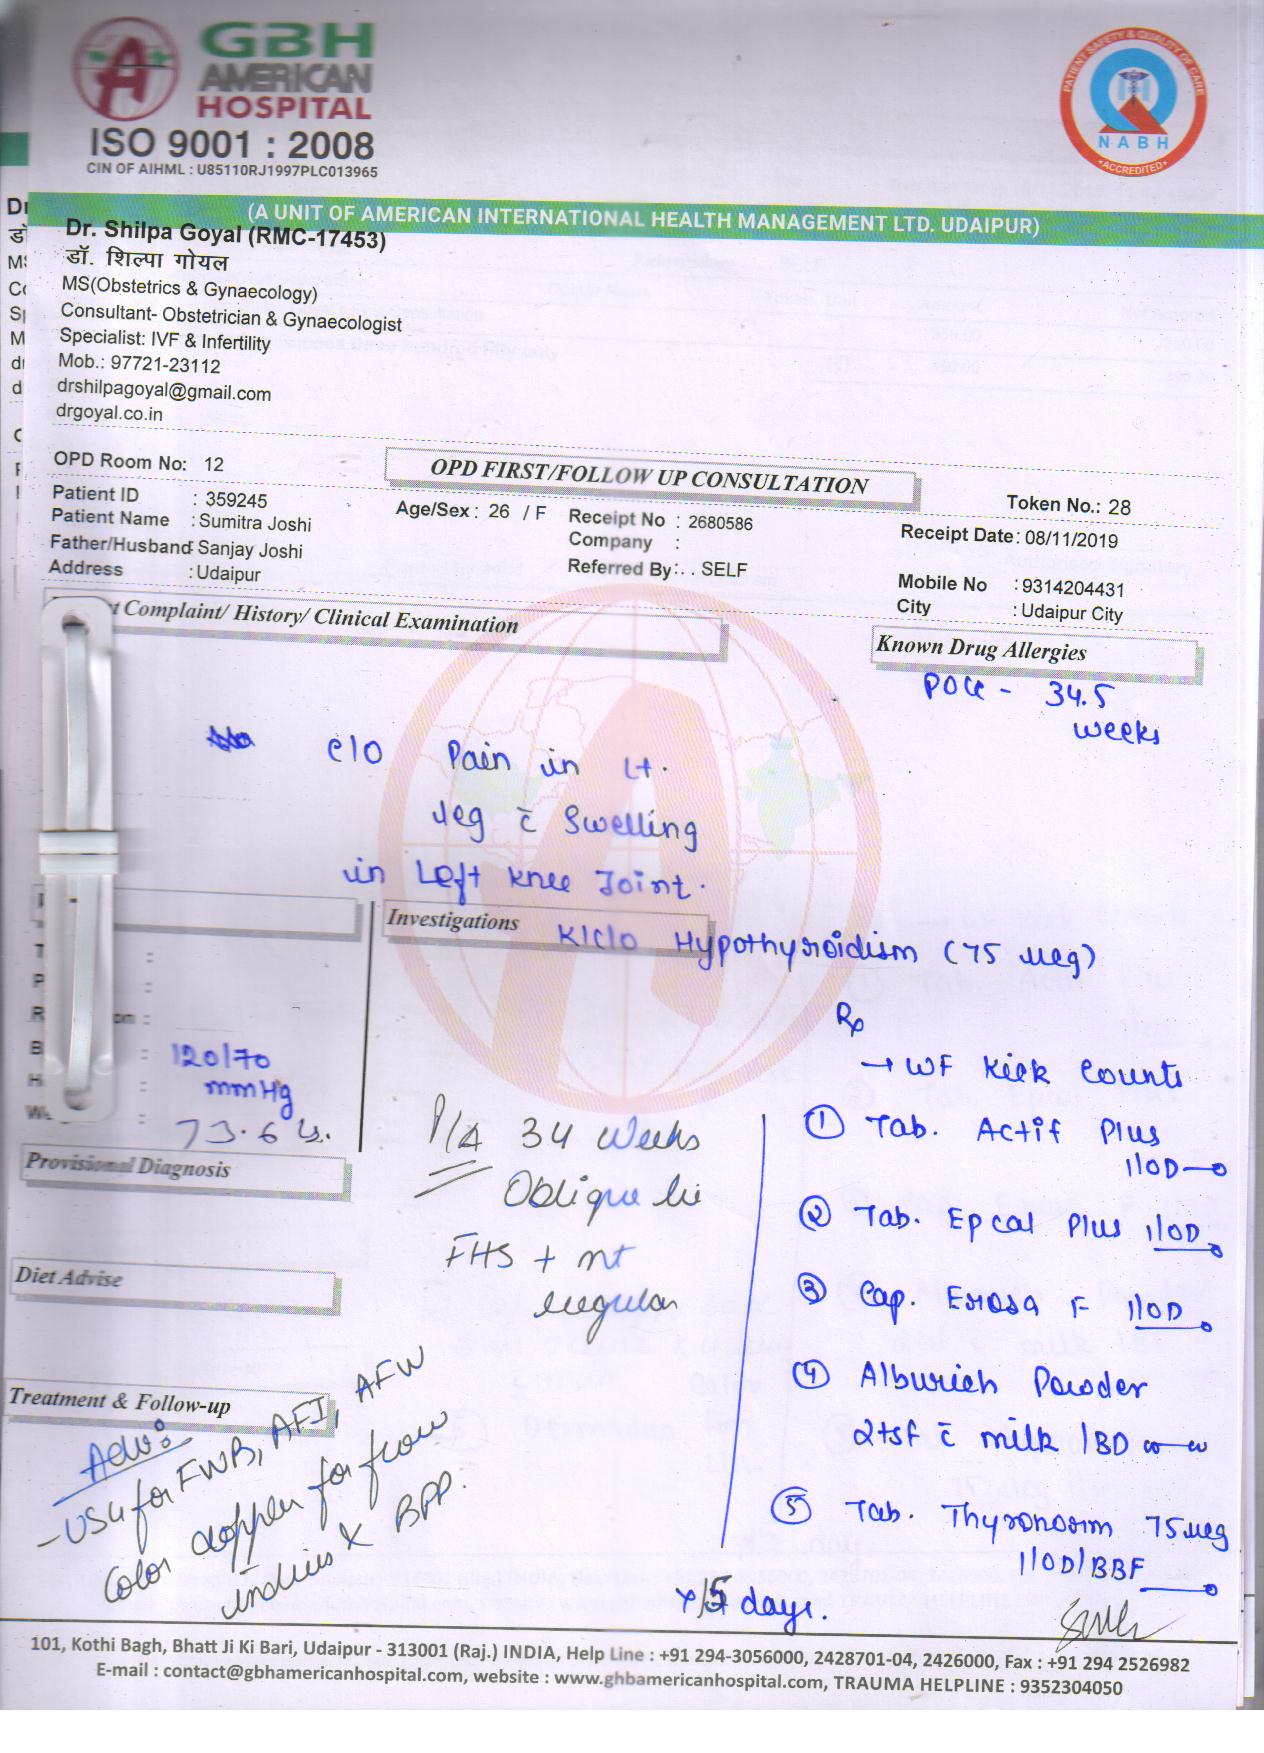 GBH
AMERICAN
HOSPITAL
ISO 9001 : 2008
CIN OF AIHML : U85110RJ1997PLC013965
PATIENT SAFETY & QUALITY OF CARE
NABH
ACCREDITED
(A UNIT OF AMERICAN INTERNATIONAL HEALTH MANAGEMENT LTD. UDAIPUR)
Dr. Shilpa Goyal (RMC-17453)
डॉ. शिल्पा गोयल
MS(Obstetrics & Gynaecology)
Consultant- Obstetrician & Gynaecologist
Specialist: IVF & Infertility
Mob.: 97721-23112
drshilpagoyal@gmail.com
drgoyal.co.in
OPD Room No: 12
OPD FIRST/FOLLOW UP CONSULTATION
Token No.: 28
Patient ID : 359245
Age/Sex : 26 / F
Receipt No : 2680586
Receipt Date: 08/11/2019
Patient Name : Sumitra Joshi
Company :
Father/Husband: Sanjay Joshi
Referred By: . . SELF
Mobile No : 9314204431
Address : Udaipur
City : Udaipur City
Complaint/ History/ Clinical Examination
Known Drug Allergies
POG - 34.5
weeks
c/o Pain in Lt.
leg c̄ Swelling
in Left Knee Joint.
Investigations
K/c/o Hypothyroidism (75 mcg)
120/70
mmHg
73.6
Rx
→ WF Kick Counts
P/A 34 weeks
Oblique lie
FHS + nt
regular
① Tab. Actif Plus
1 OD
② Tab. Epcal Plus 1 OD
③ Cap. Exosa F 1 OD
④ Alburich Powder
2tsf c̄ milk 1BD
⑤ Tab. Thyronorm 75 mcg
1 OD/BBF
x 15 days.
Provisional Diagnosis
Diet Advise
Treatment & Follow-up
Adv:
- USG for FWB, AFI, AFW
Color doppler for flow
indices & BPP.
101, Kothi Bagh, Bhatt Ji Ki Bari, Udaipur - 313001 (Raj.) INDIA, Help Line : +91 294-3056000, 2428701-04, 2426000, Fax : +91 294 2526982
E-mail : contact@gbhamericanhospital.com, website : www.ghbamericanhospital.com, TRAUMA HELPLINE : 9352304050